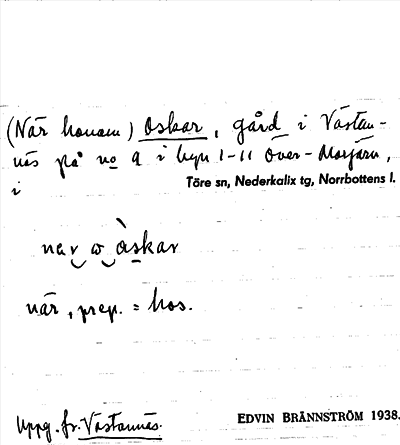 (När honom) Oskar, gård i Västan-
näs på no 9 i byn 1-11 Över-Morjärv,
i Töre sn, Nederkalix tg, Norrbottens l.
nar ω òskar
när, prep. = hos.
Uppg. fr. Västannäs.
EDVIN BRÄNNSTRÖM 1938.